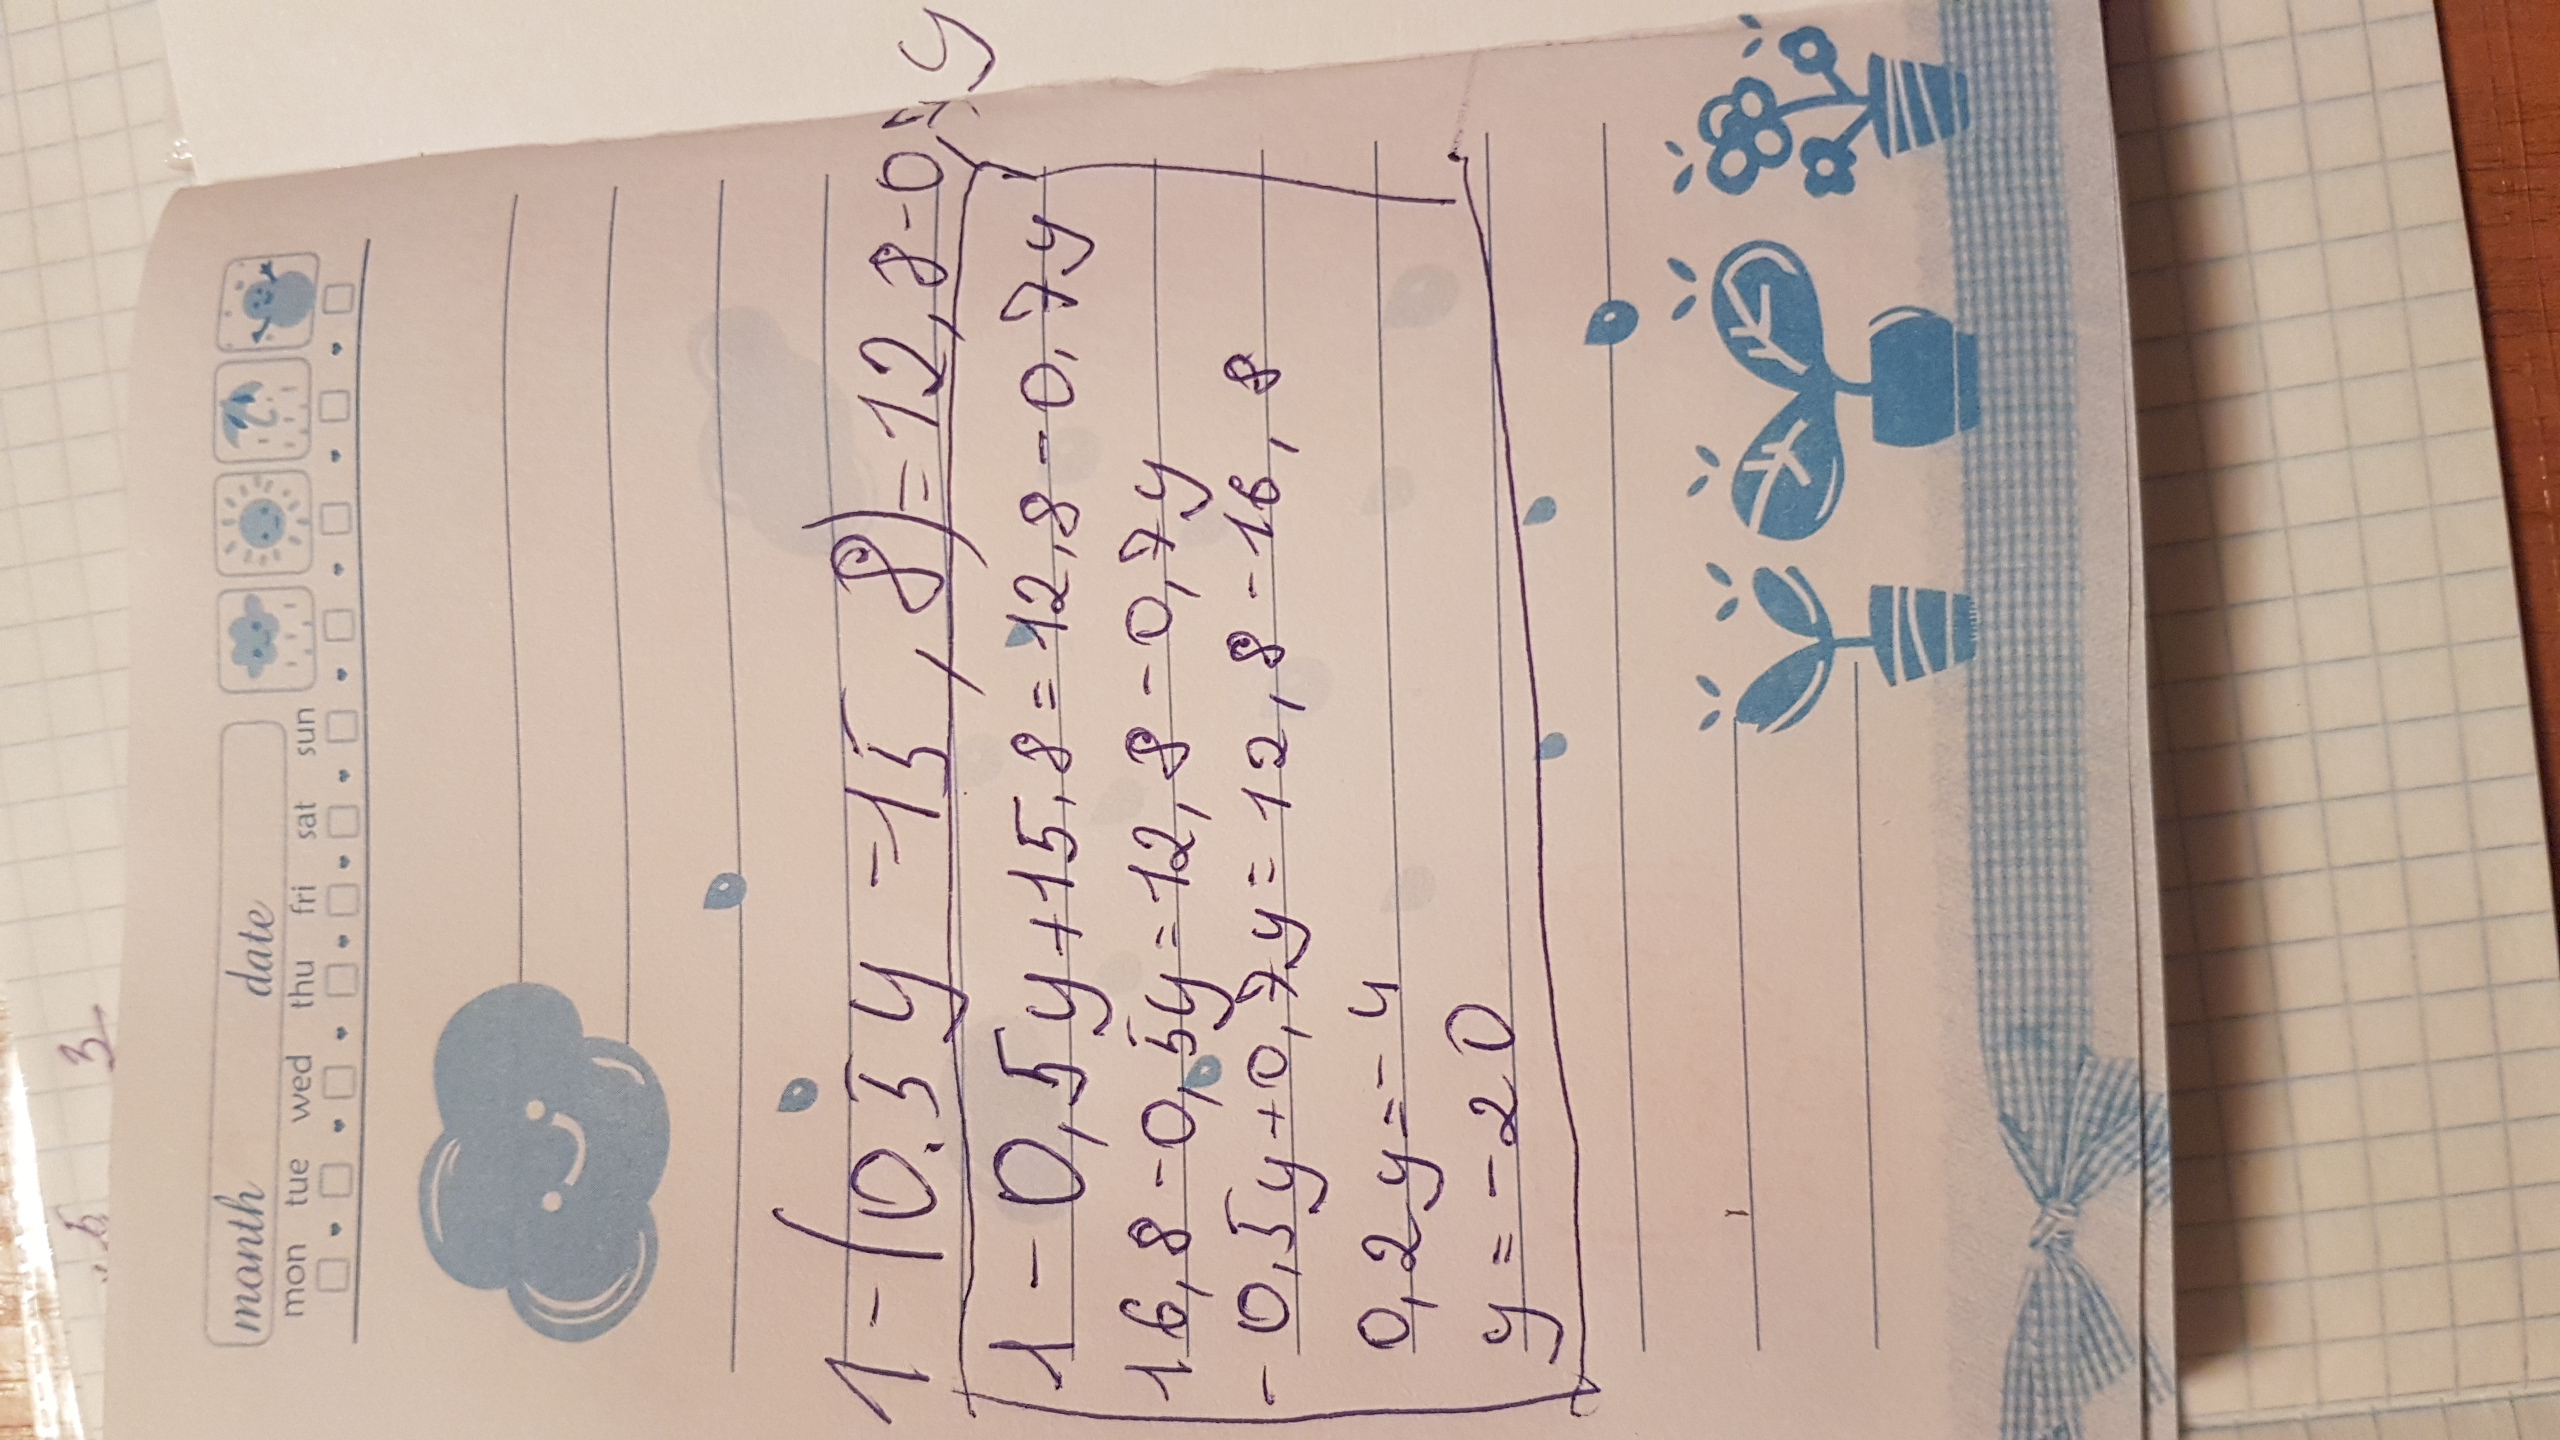 month date
mon tue wed thu fri sat sun
1-(0.5y-15,8)=12,8-0,7y
1-0,5y+15,8=12,8-0,7y
16,8-0,5y=12,8-0,7y
-0,5y+0,7y=12,8-16,8
0,2y=-4
y=-20